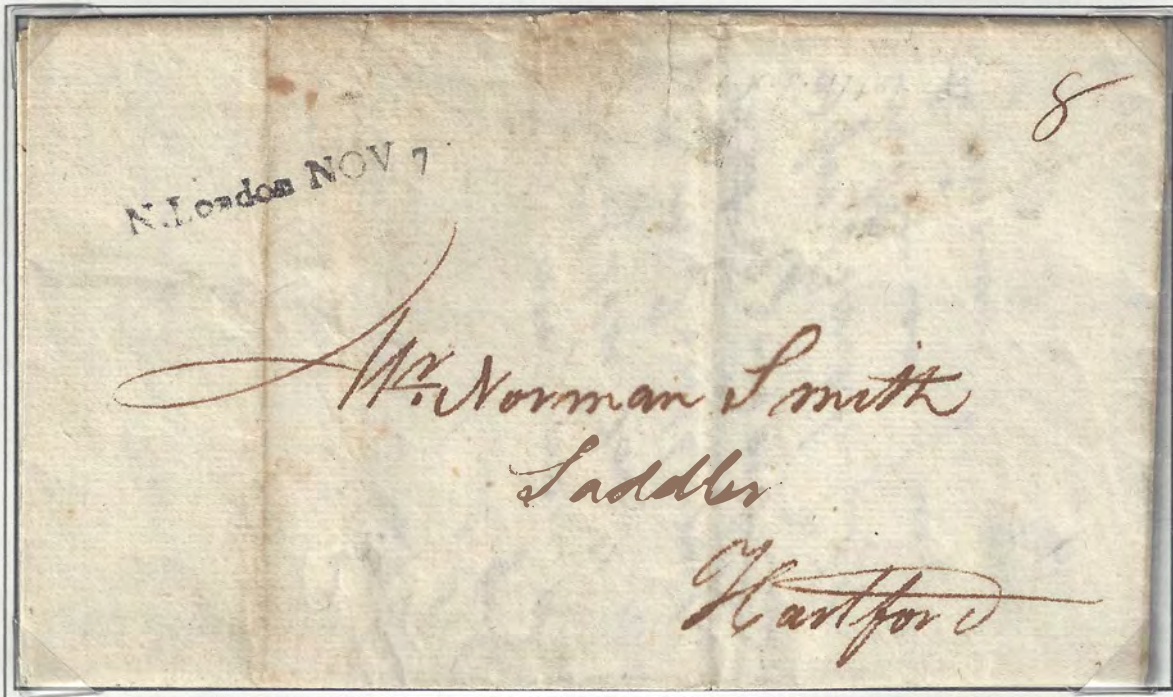 8
N.London NOV 7
Mr. Norman Smith
Saddler
Hartford